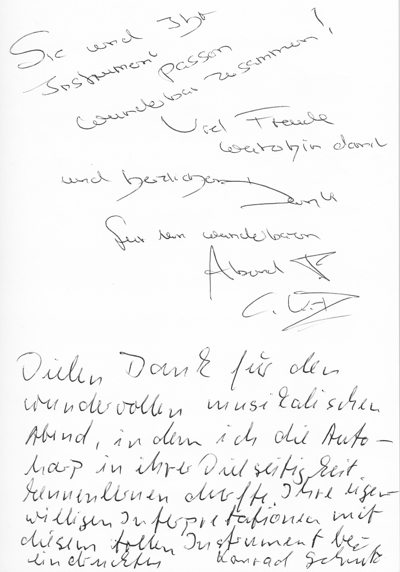 Sie und Ihr
Instrument
passen
wunderbar zusammen!
Viel Freude
weiterhin damit
und herzlichen
Dank
für den wunderbaren
Abend
Vielen Dank für den
wundervollen musikalischen
Abend, in dem ich die Auto-
harp in ihrer Vielseitigkeit
kennenlernen durfte. Ihre eigen-
willigen Interpretationen mit
diesem tollen Instrument be-
eindruckten Konrad